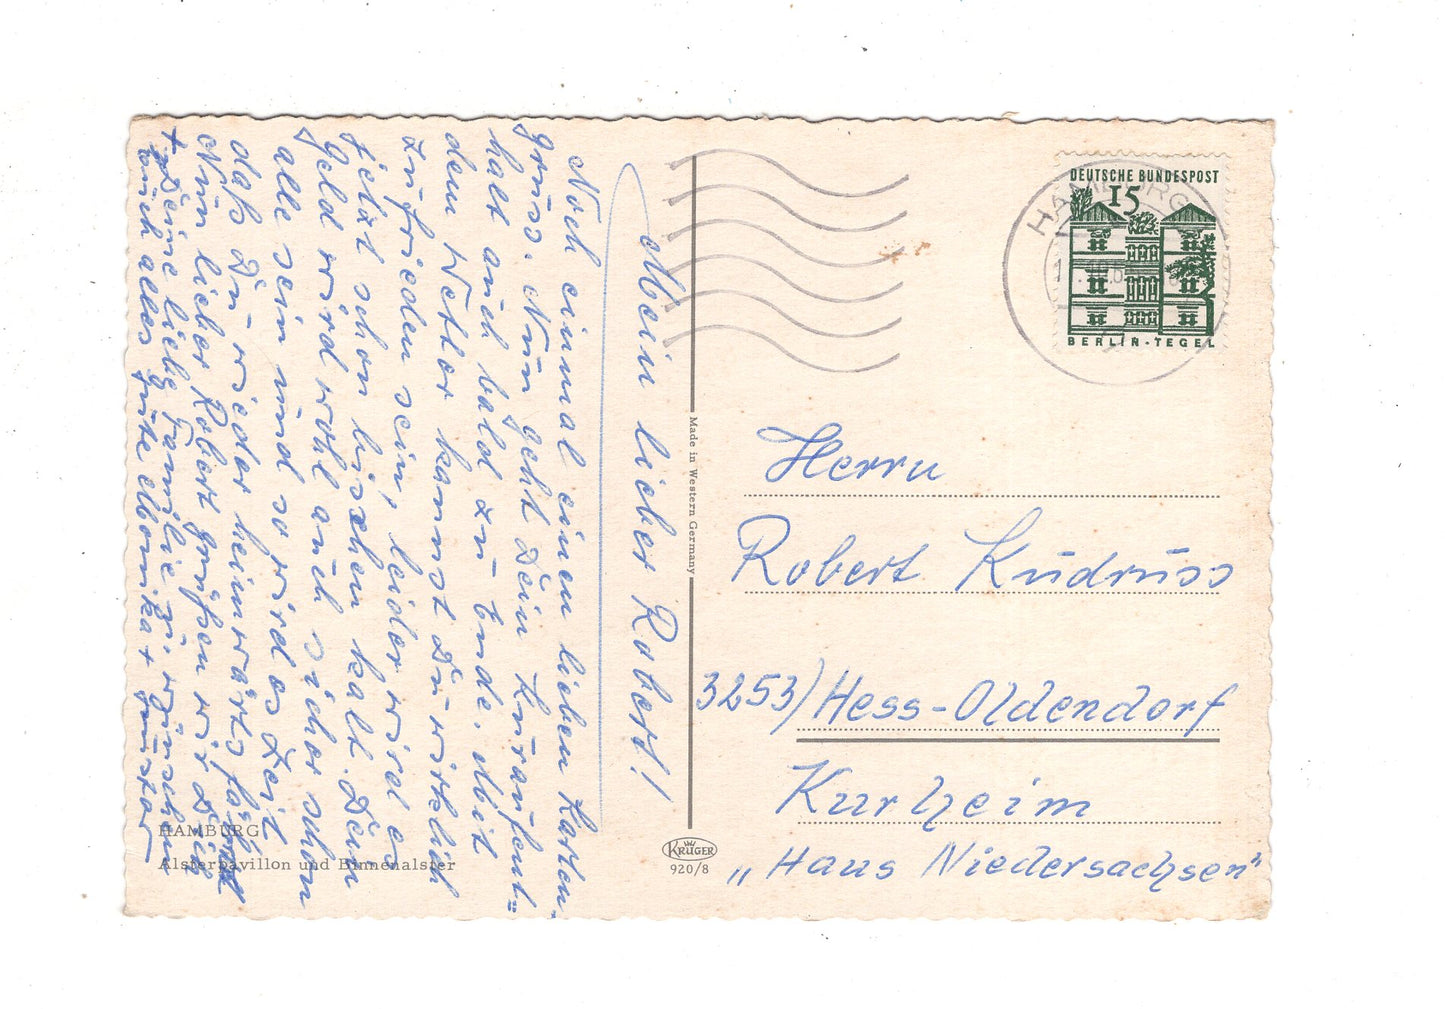 Mein lieber Robert!
Noch einmal einen lieben Karten-
gruss. Nun geht Dein Kuraufent=
halt auch bald zu Ende. Mit
dem Wetter kannst Du wirklich
zufrieden sein, leider wird es
jetzt schon bisschen kalt. Dein
Geld wird wohl auch sicher schon
alle sein und so wird es Zeit
daß Du wieder heimwärts fährst
Nun lieber Robert grüßen wir Dich
+ Deine liebe Familie u. wünschen
Euch alles Gute Monika + Günter
HAMBURG
Alsterpavillon und Binnenalster
Made in Western Germany
KRÜGER
920/8
HAMBURG
DEUTSCHE BUNDESPOST
15
BERLIN-TEGEL
Herrn
Robert Kudruss
3253) Hess-Oldendorf
Kurheim
„Haus Niedersachsen"